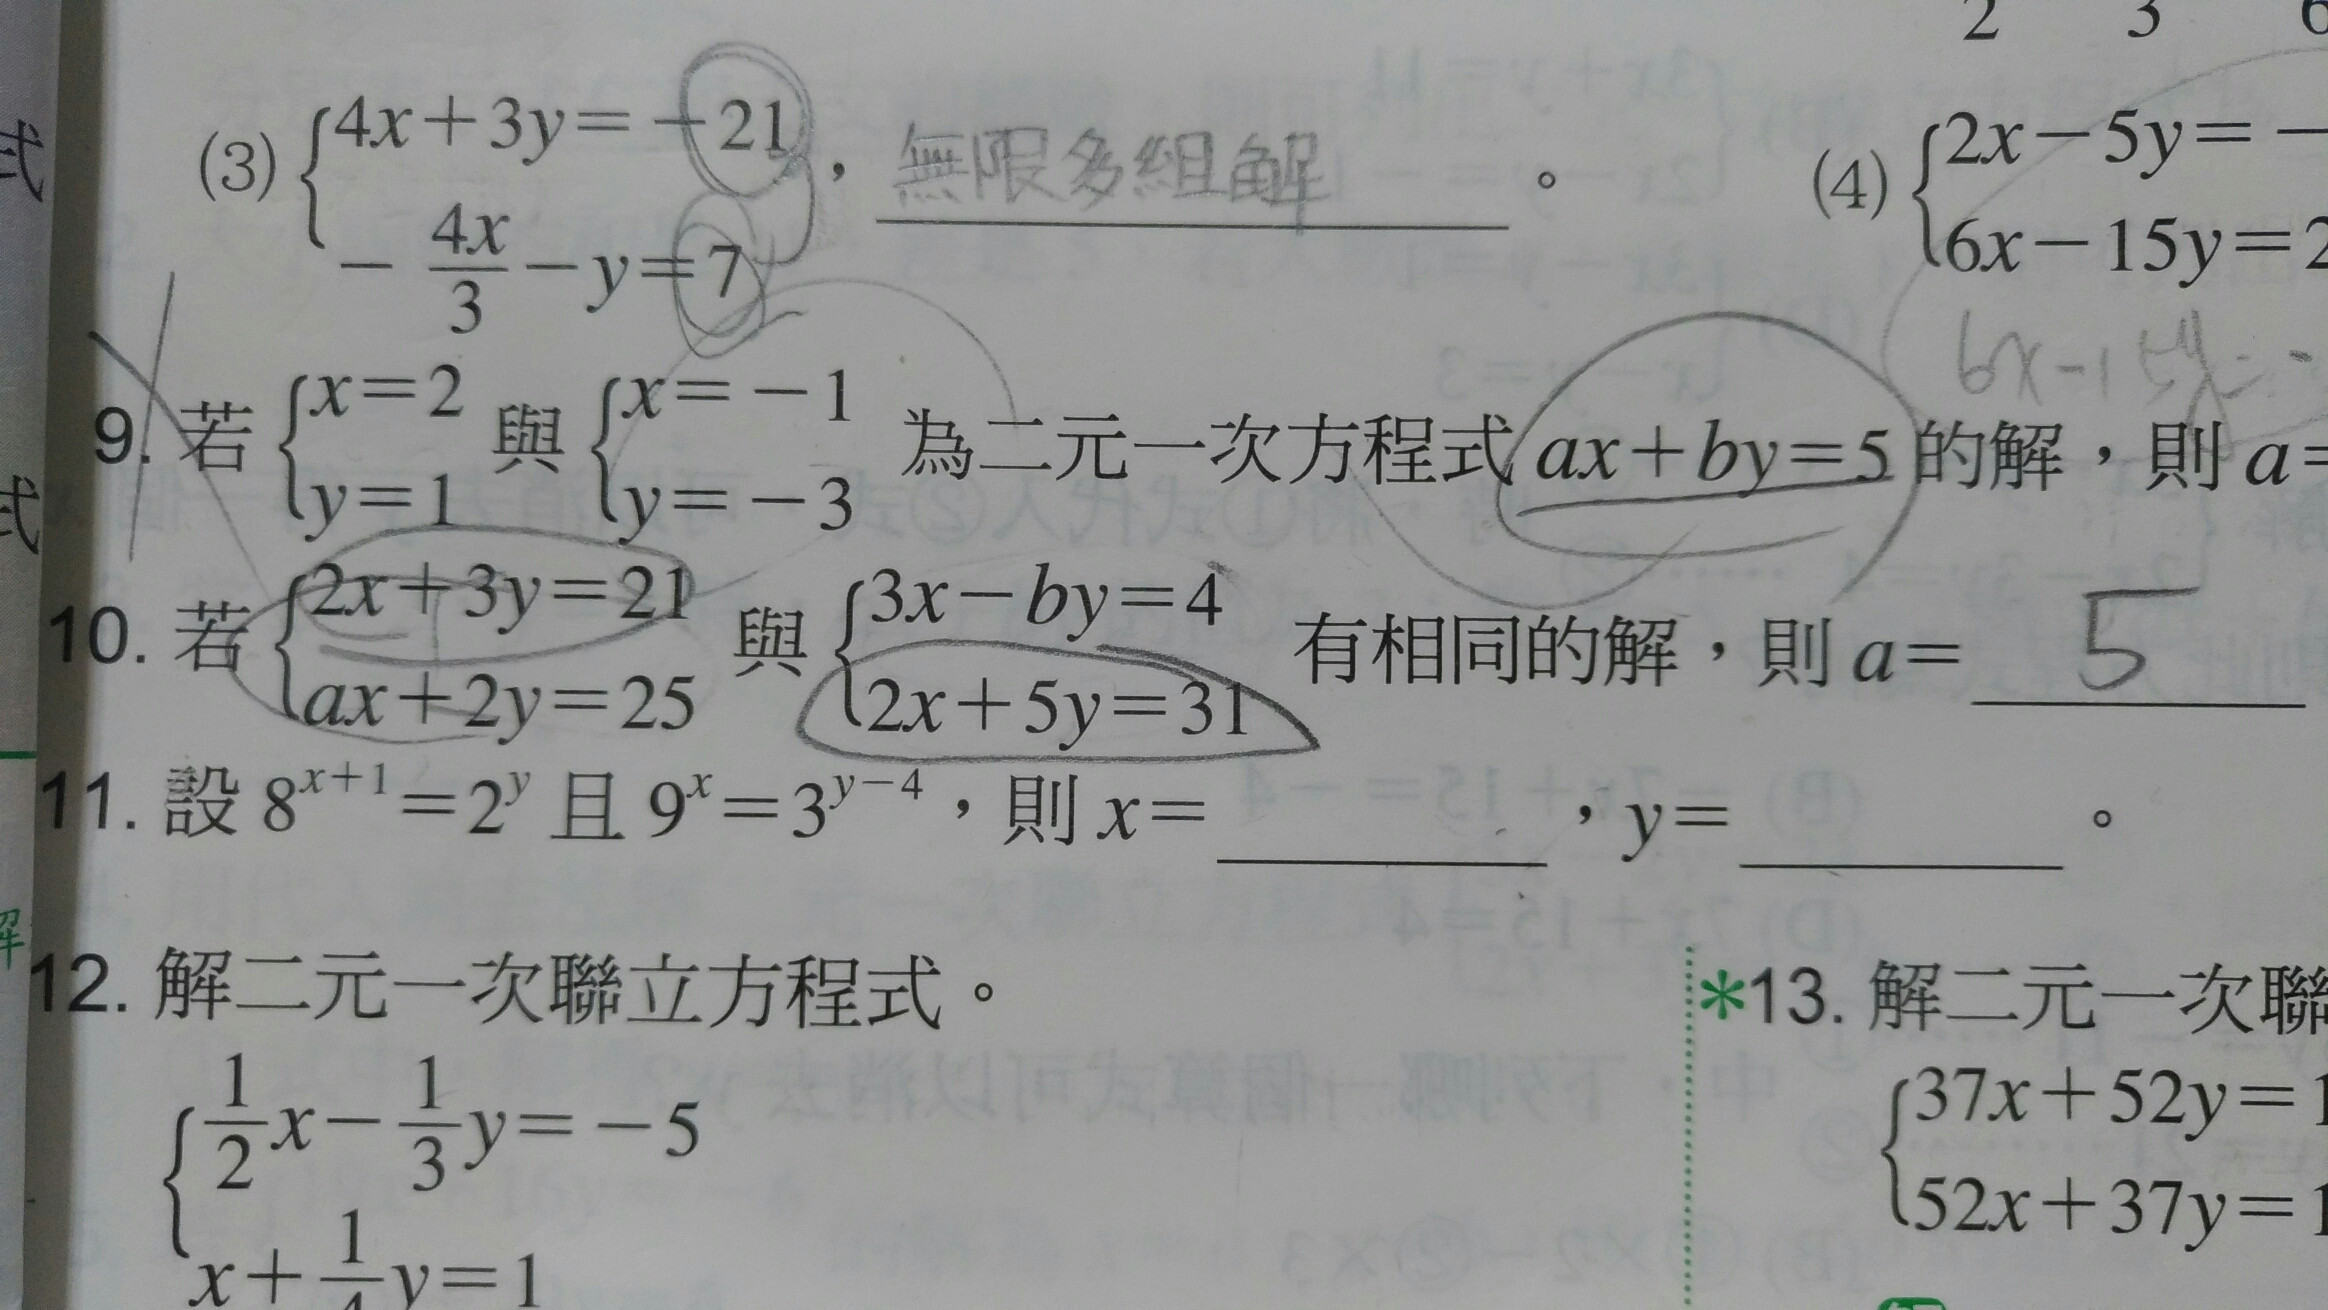 2 3 6
(3) {4x+3y=-21
-4x/3-y=7 , 無限多組解 。
(4) {2x-5y=-
6x-15y=2
6x-15y=-
9. 若 {x=2 y=1 與 {x=-1 y=-3 為二元一次方程式 ax+by=5 的解，則 a=
10. 若 {2x+3y=21 ax+2y=25 與 {3x-by=4 2x+5y=31 有相同的解，則 a= 5
11. 設 8^{x+1}=2^y 且 9^x=3^{y-4}，則 x=______，y=______。
12. 解二元一次聯立方程式。
{1/2x-1/3y=-5
x+1/4y=1
*13. 解二元一次聯
{37x+52y=1
52x+37y=1